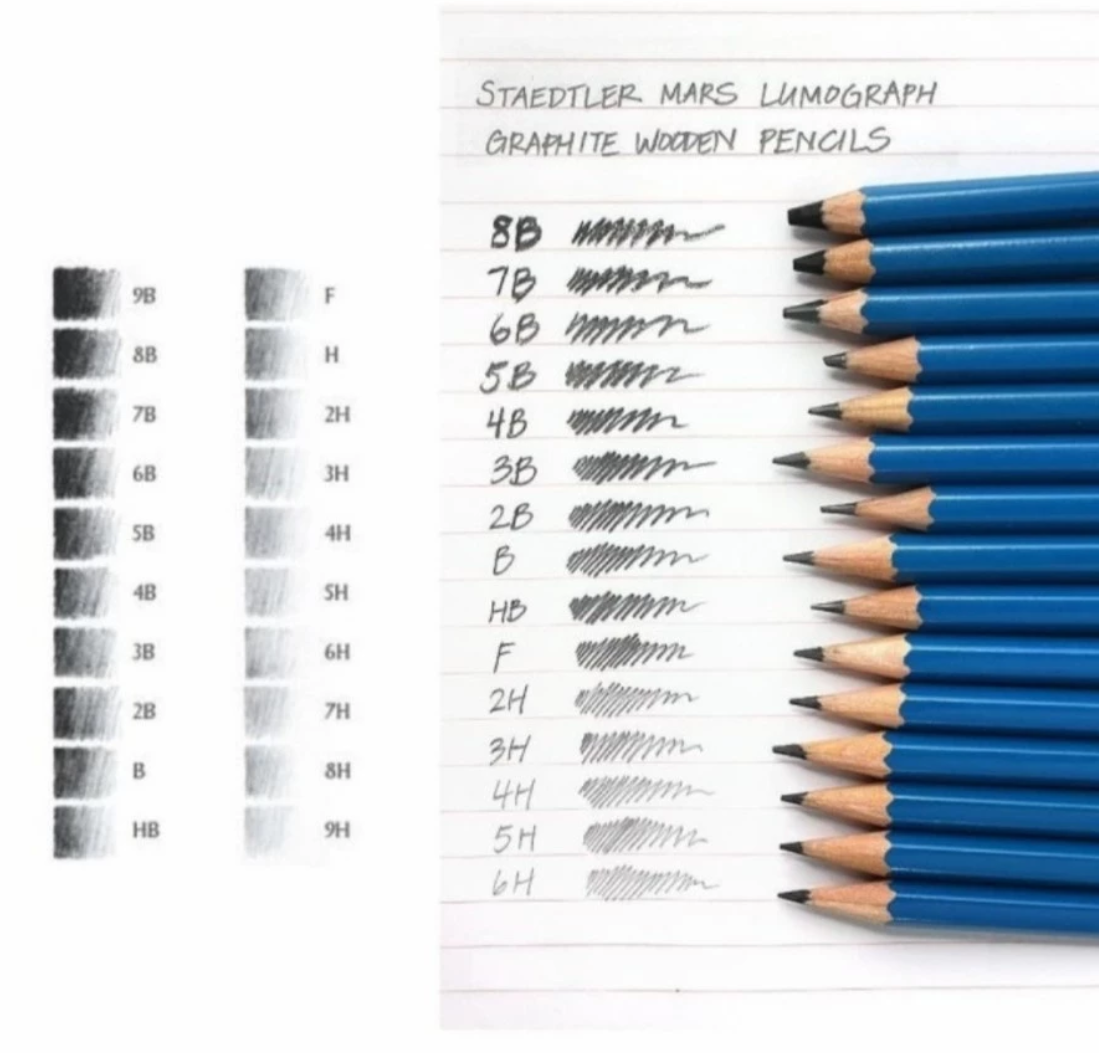 9B
8B
7B
6B
5B
4B
3B
2B
B
HB
F
H
2H
3H
4H
5H
6H
7H
8H
9H
STAEDTLER MARS LUMOGRAPH
GRAPHITE WOODEN PENCILS
8B
7B
6B
5B
4B
3B
2B
B
HB
F
2H
3H
4H
5H
6H